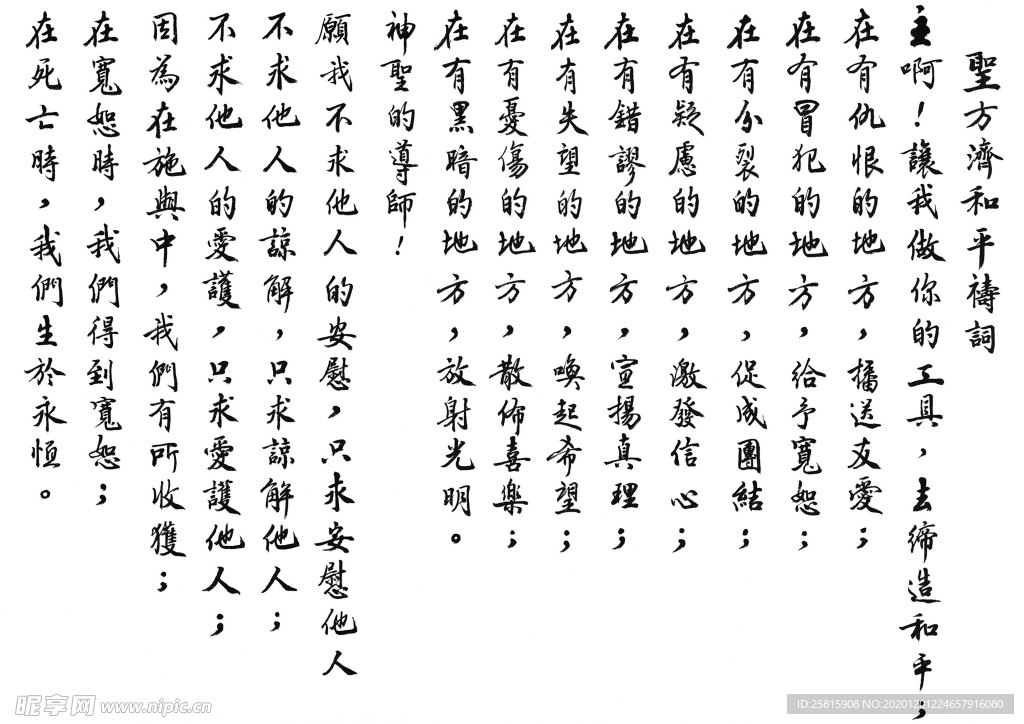 聖方濟和平禱詞
主啊！讓我做你的工具，去締造和平；
在有仇恨的地方，播送友愛；
在有冒犯的地方，給予寬恕；
在有分裂的地方，促成團結；
在有疑慮的地方，激發信心；
在有錯謬的地方，宣揚真理；
在有失望的地方，喚起希望；
在有憂傷的地方，散佈喜樂；
在有黑暗的地方，放射光明。
神聖的導師！
願我不求他人的安慰，只求安慰他人
不求他人的諒解，只求諒解他人；
不求他人的愛護，只求愛護他人；
因為在施與中，我們有所收獲；
在寬恕時，我們得到寬恕；
在死亡時，我們生於永恒。
昵享网 www.nipic.cn
ID:25815908 NO:20201201224657916080